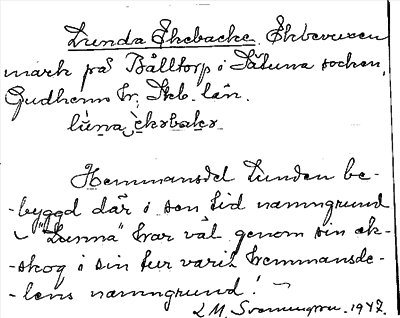 Lunda Ekebacke. Ekbevuxen
mark på Bålltorp i Sätuna socken,
Gudhems hr, Skb. län.
lùna èkəbakə
Hemmansdel Lunden be-
-byggd där i sen tid namngrund
- "Lunna" har väl genom sin ek-
-skog i sin tur varit hemmansde-
-lens namngrund! -
L M. Svenungsson. 1947.